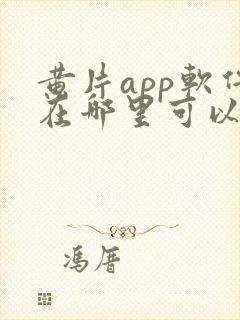 黄片app軟件
在哪里可以
馮厝